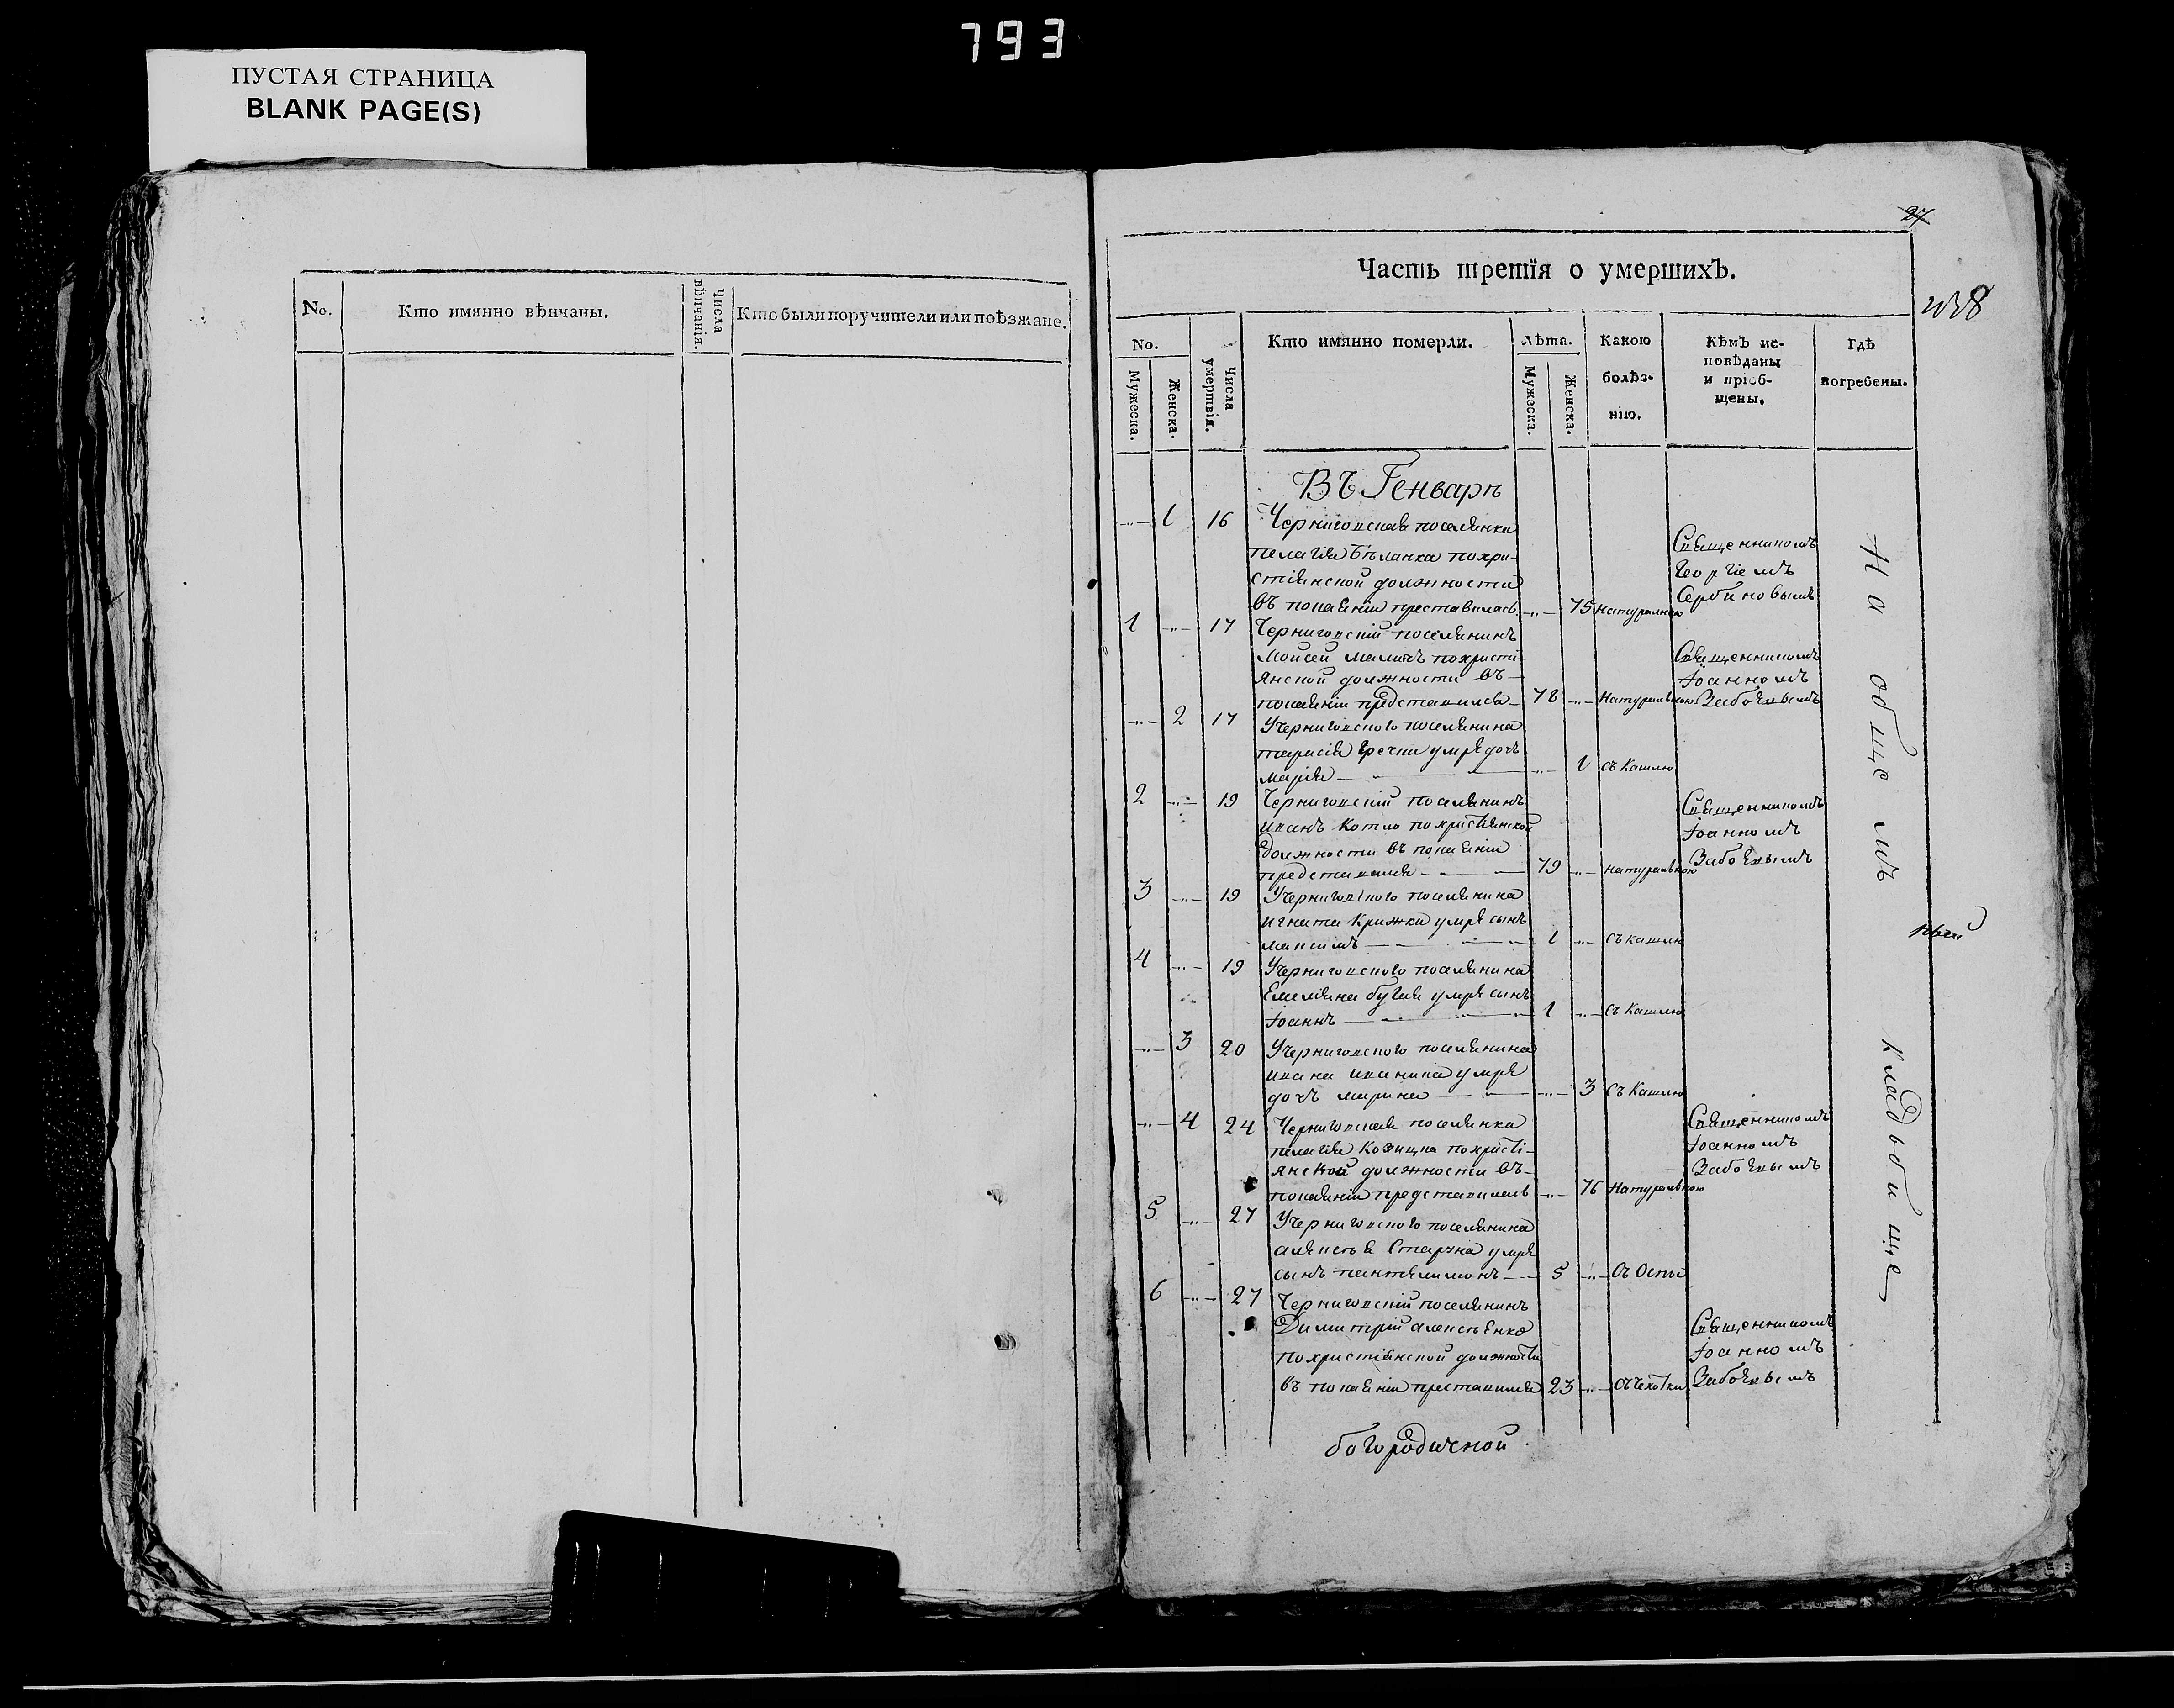 793
ПУСТАЯ СТРАНИЦА
BLANK PAGE(S)
No.
Кто имянно вѣнчаны.
Числа вѣнчанія.
Кто были поручители или поѣзжане.
27
Часть третїя о умершихъ.
No.
Мужеска.
Женска.
Числа умертвія.
Кто имянно померли.
Лѣта.
Мужеска.
Женска.
Какою болѣз-
нію.
Кѣмъ ис-
повѣданы
и пріоб-
щены.
Гдѣ
погребены.
Въ Генварѣ
1 16 Черниговская поселянка
пелагія Бѣланка похри-
стіянской должности
въ покаяніи преставилась 75 натуралною
Священникомъ
Георгіемъ
Сербиновымъ
1 17 Черниговскій поселянинъ
Моисей похристі-
янской должности въ
покаяніи представился 78 Натуральною
Священникомъ
Іоанномъ
2 17 Учерниговского поселянина
тарасія умре дочь
марія 1 съ Кашлю
2 19 Черниговскій поселянинъ
иванъ Котло похристіянской
должности въ покаяніи
представился 79 натуральною
Священникомъ
Іоанномъ
3 19 Учерниговского поселянина
игната Крижки умре сынъ
максимъ 1 съ кашлю
4 19 Учерниговского поселянина
Емеляна бугая умре сынъ
Іоаннъ 1 съ Кашлю
3 20 Учерниговского поселянина
ивана умре
дочь марина 3 съ Кашлю
4 24 Черниговская поселянка
пелагія похристі-
янской должности въ
покаяніи представилась 76 Натуральною
Священникомъ
Іоанномъ
5 27 Учерниговского поселянина
алексѣя умре
сынъ пантелимонъ 5 Оспы
6 27 Черниговскій поселянинъ
Димитрій алексѣенко
похристіянской должности
въ покаяніи преставился 23 чехотки
Священникомъ
Іоанномъ
На общемъ кладбище
богородичной